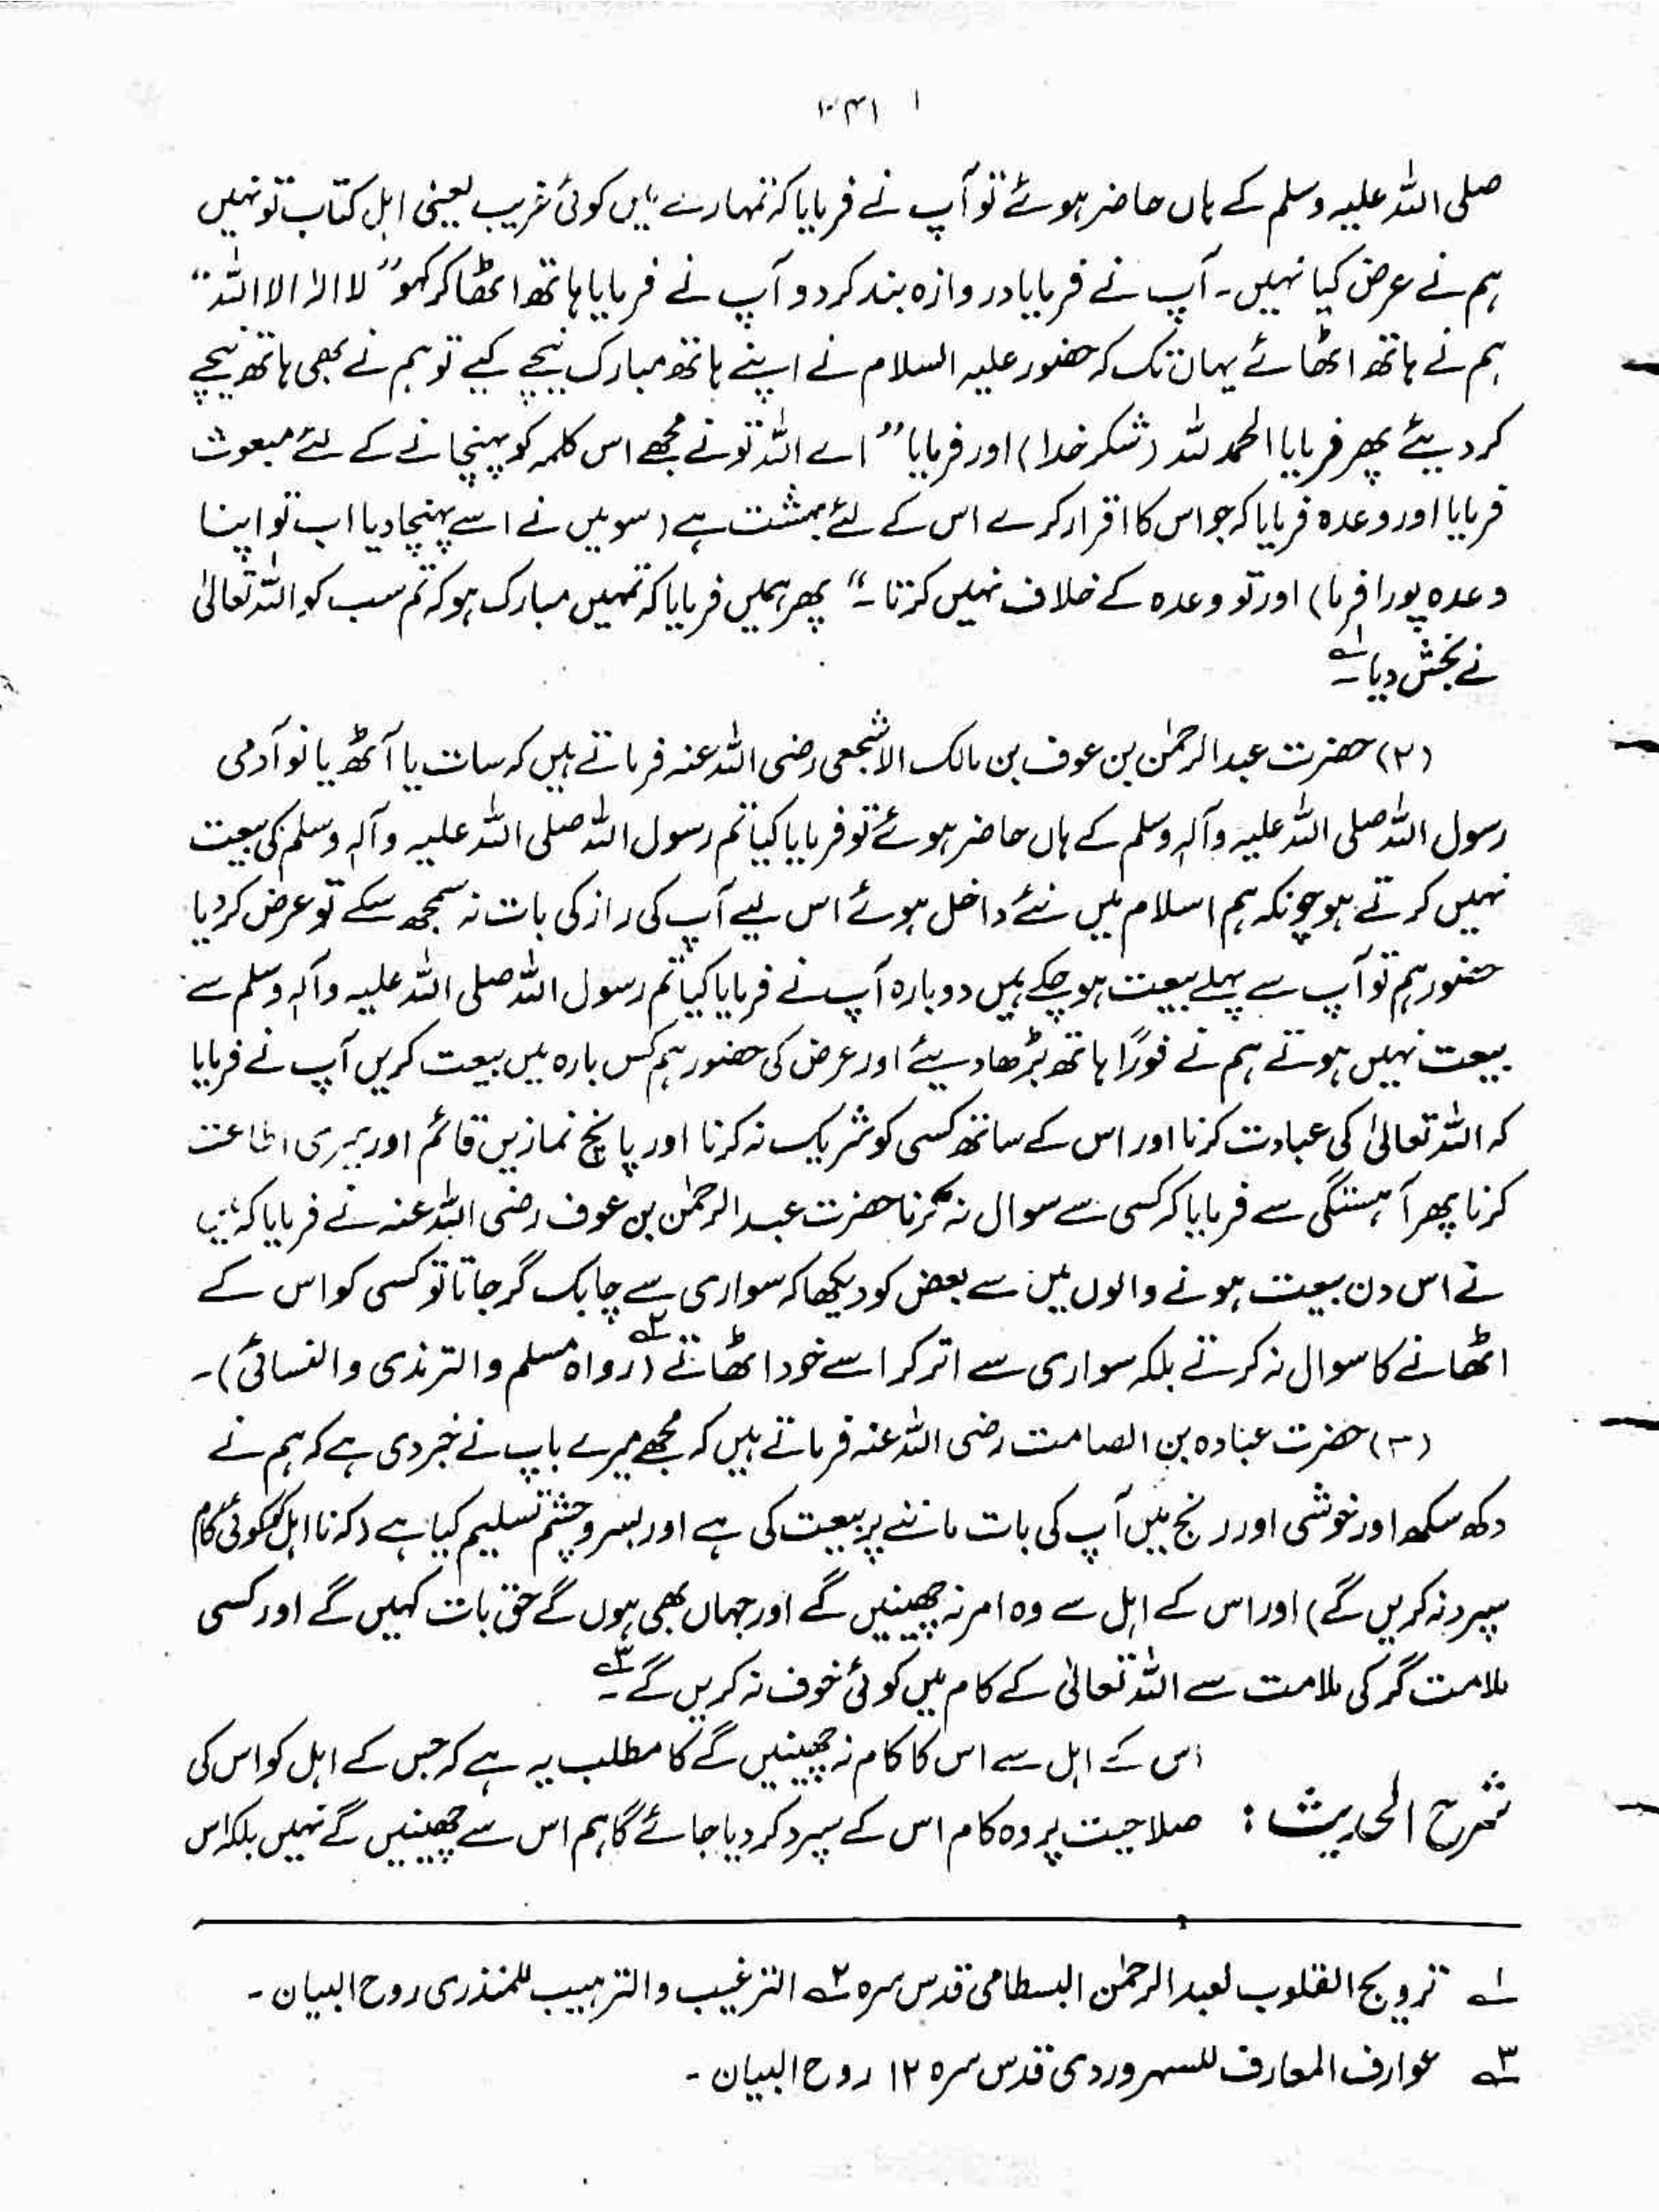 ۳۴۱
صلی اللہ علیہ وسلم کے ہاں حاضر ہوئے تو آپ نے فرمایا کہ تمہارے میں کوئی غریب یعنی اہل کتاب تو نہیں
ہم نے عرض کیا نہیں۔ آپ نے فرمایا دروازہ بند کر دو آپ نے فرمایا ہاتھ اٹھا کر کہو ”لا الہ الا اللہ“
ہم نے ہاتھ اٹھائے یہاں تک کہ حضور علیہ السلام نے اپنے ہاتھ مبارک نیچے کیے تو ہم نے بھی ہاتھ نیچے
کر دیئے پھر فرمایا الحمد للہ (شکر خدا) اور فرمایا ”اے اللہ تو نے مجھے اس کلمہ کو پہنچانے کے لئے مبعوث
فرمایا اور وعدہ فرمایا کہ جو اس کا اقرار کرے اس کے لئے بہشت ہے (سو میں نے اسے پہنچا دیا اب تو اپنا
وعدہ پورا فرما) اور تو وعدہ کے خلاف نہیں کرتا۔“ پھر ہمیں فرمایا کہ تمہیں مبارک ہو کہ تم سب کو اللہ تعالیٰ
نے بخش دیا۔ ۱؎
(۲) حضرت عبدالرحمٰن بن عوف بن مالک الاشجعی رضی اللہ عنہ فرماتے ہیں کہ سات یا آٹھ یا نو آدمی
رسول اللہ صلی اللہ علیہ وآلہ وسلم کے ہاں حاضر ہوئے تو فرمایا کیا تم رسول اللہ صلی اللہ علیہ وآلہ وسلم کی بیعت
نہیں کرتے ہو چونکہ ہم اسلام میں نئے داخل ہوئے اس لیے آپ کی راز کی بات نہ سمجھ سکے تو عرض کر دیا
حضور ہم تو آپ سے پہلے بیعت ہو چکے ہیں دوبارہ آپ نے فرمایا کیا تم رسول اللہ صلی اللہ علیہ وآلہ وسلم سے
بیعت نہیں ہوتے ہم نے فوراً ہاتھ بڑھا دیئے اور عرض کی حضور ہم کس بارہ میں بیعت کریں آپ نے فرمایا
کہ اللہ تعالیٰ کی عبادت کرنا اور اس کے ساتھ کسی کو شریک نہ کرنا اور پانچ نمازیں قائم اور میری اطاعت
کرنا پھر آہستگی سے فرمایا کہ کسی سے سوال نہ کرنا حضرت عبدالرحمٰن بن عوف رضی اللہ عنہ نے فرمایا کہ میں
نے اس دن بیعت ہونے والوں میں سے بعض کو دیکھا کہ سواری سے چابک گر جاتا تو کسی کو اس کے
اٹھانے کا سوال نہ کرتے بلکہ سواری سے اتر کر اسے خود اٹھاتے ۲؎ (رواہ مسلم والترمذی والنسائی)۔
(۳) حضرت عبادہ بن الصامت رضی اللہ عنہ فرماتے ہیں کہ مجھے میرے باپ نے خبر دی ہے کہ ہم نے
دکھ سکھ اور خوشی اور رنج میں آپ کی بات ماننے پر بیعت کی ہے اور بسر و چشم تسلیم کیا ہے (کہ نا اہل کو کوئی کام
سپرد نہ کریں گے) اور اس کے اہل سے وہ امر نہ چھینیں گے اور جہاں بھی ہوں گے حق بات کہیں گے اور کسی
ملامت گر کی ملامت سے اللہ تعالیٰ کے کام میں کوئی خوف نہ کریں گے۔ ۳؎
اس کے اہل سے اس کا کام نہ چھینیں گے کا مطلب یہ ہے کہ جس کے اہل کو اس کی
شرح الحدیث : صلاحیت پر وہ کام اس کے سپرد کر دیا جائے گا ہم اس سے چھینیں گے نہیں بلکہ اس
۱؎ ترویح القلوب لعبدالرحمٰن البسطامی قدس سرہ ۲؎ الترغیب والترہیب للمنذری روح البیان۔
۳؎ عوارف المعارف للسہروردی قدس سرہ ۱۲ روح البیان۔